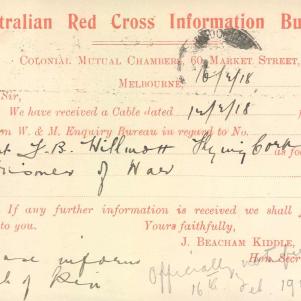 tralian Red Cross Information Bu
Colonial Mutual Chambers, 60 Market Street,
Melbourne, 16/2/18
Sir,
We have received a Cable dated 14/2/18
m W. & M. Enquiry Bureau in regard to No.
t F. B. Willmott Flying Corps as fo
risoner of War
If any further information is received we shall f
to you. Yours faithfully,
J. Beacham Kiddle,
Hon. Secre
ase inform
of Kin
Officially
16th Feb. 191